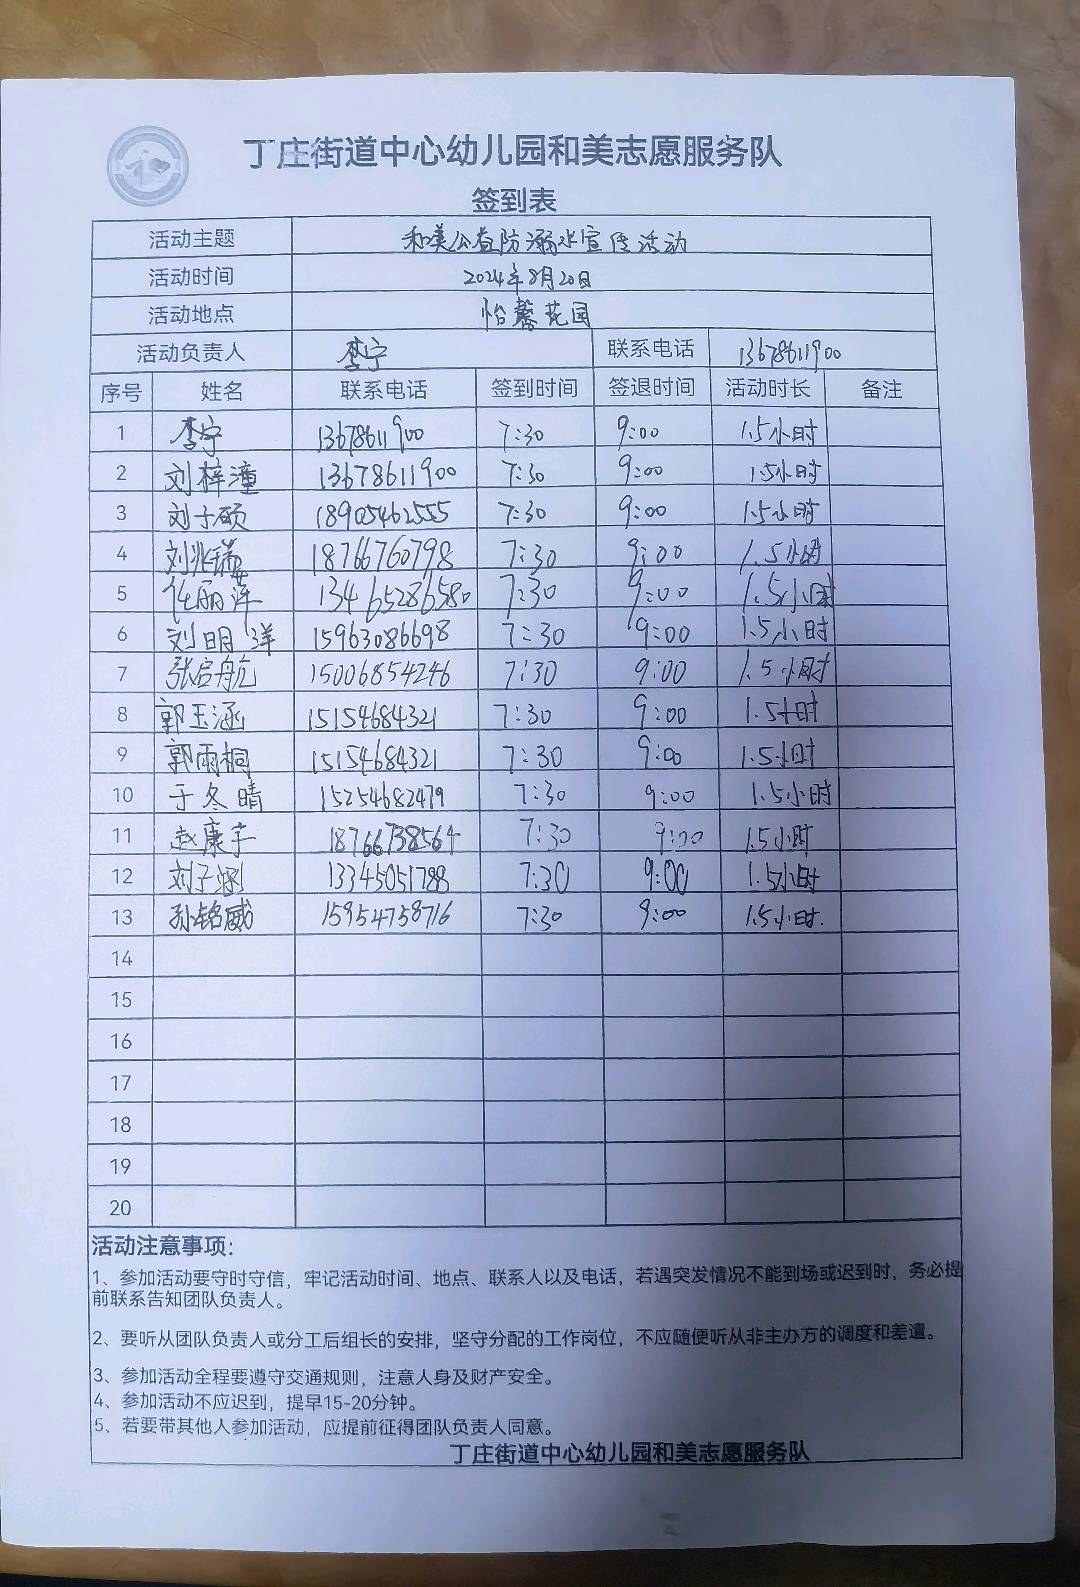 丁庄街道中心幼儿园和美志愿服务队
签到表
活动主题 和美公益防溺水宣传活动
活动时间 2024年8月20日
活动地点 怡馨花园
活动负责人 李宁 联系电话 13678611900
序号 姓名 联系电话 签到时间 签退时间 活动时长 备注
1 李宁 13678611900 7:30 9:00 1.5小时
2 刘梓潼 13678611900 7:30 9:00 1.5小时
3 刘子硕 18905462555 7:30 9:00 1.5小时
4 18766760798 7:30 9:00 1.5小时
5 任丽萍 13465286580 7:30 9:00 1.5小时
6 刘明洋 15963086698 7:30 9:00 1.5小时
7 张启航 15006854246 7:30 9:00 1.5小时
8 郭玉涵 15154684321 7:30 9:00 1.5小时
9 郭雨桐 15154684321 7:30 9:00 1.5小时
10 于冬晴 15254682479 7:30 9:00 1.5小时
11 赵康宇 18766738564 7:30 9:00 1.5小时
12 刘子涵 13345051788 7:30 9:00 1.5小时
13 孙铭威 15954758716 7:30 9:00 1.5小时.
14
15
16
17
18
19
20
活动注意事项：
1、参加活动要守时守信，牢记活动时间、地点、联系人以及电话，若遇突发情况不能到场或迟到时，务必提
前联系告知团队负责人。
2、要听从团队负责人或分工后组长的安排，坚守分配的工作岗位，不应随便听从非主办方的调度和差遣。
3、参加活动全程要遵守交通规则，注意人身及财产安全。
4、参加活动不应迟到，提早15-20分钟。
5、若要带其他人参加活动，应提前征得团队负责人同意。
丁庄街道中心幼儿园和美志愿服务队